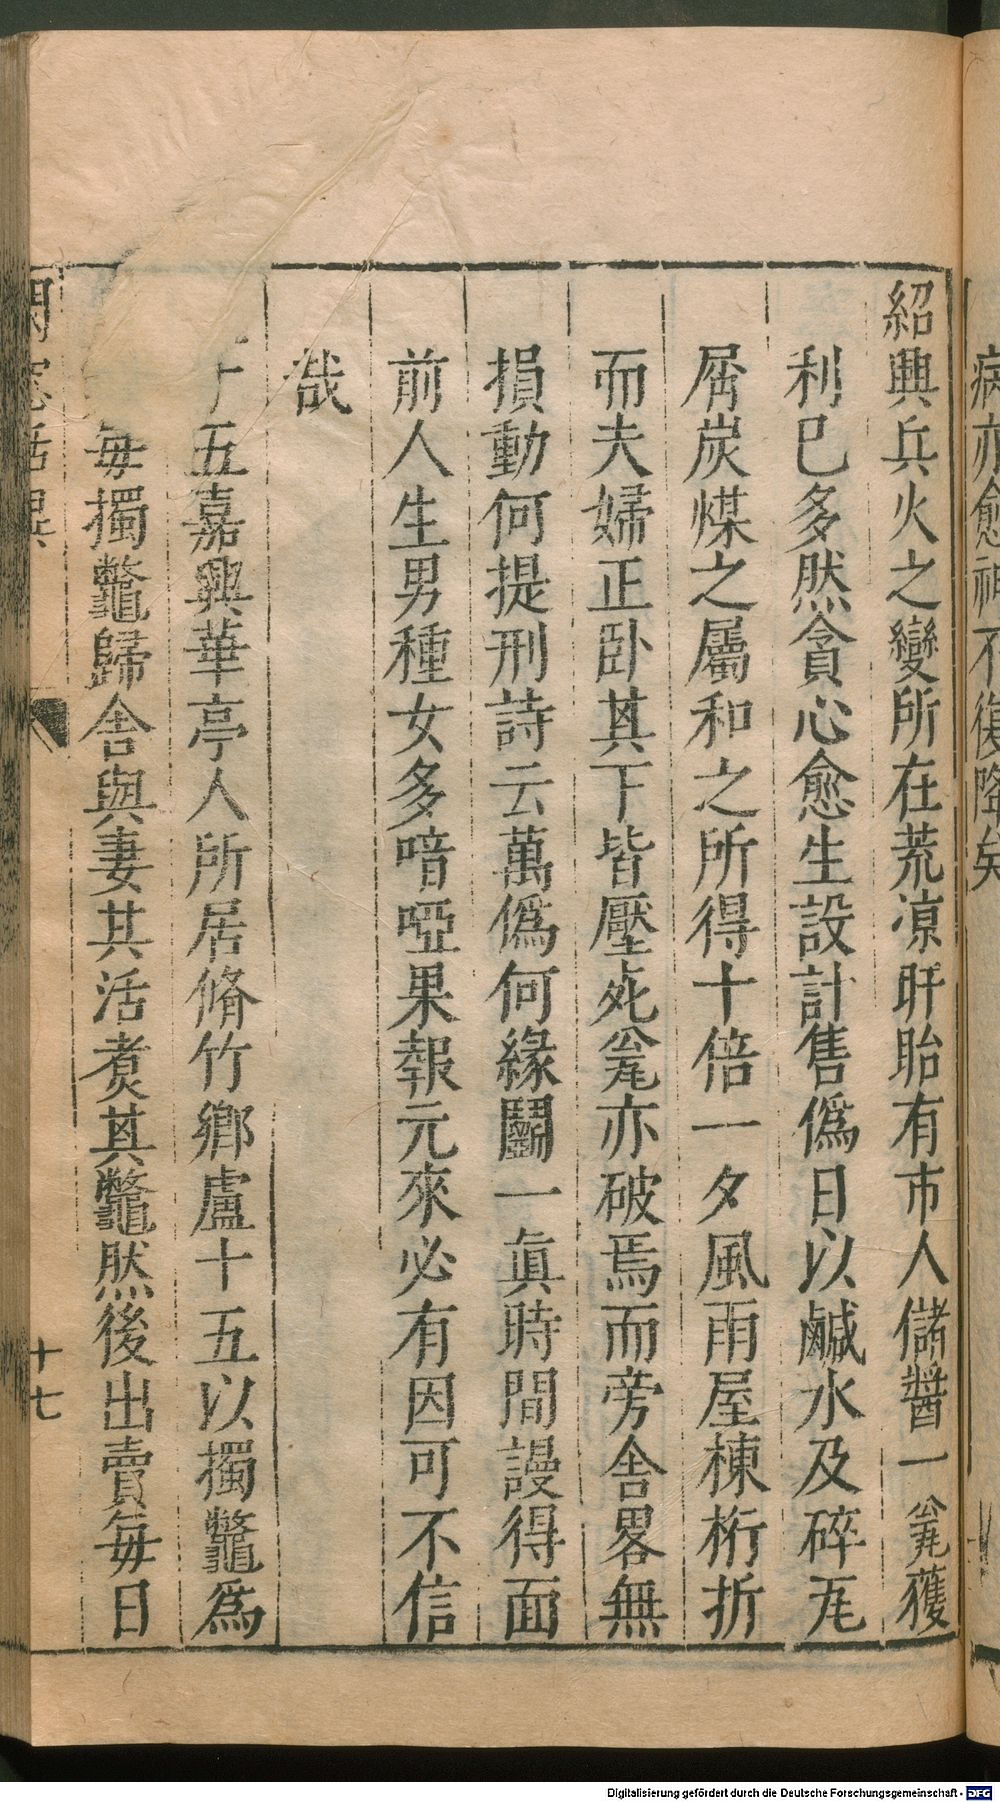 病亦愈神不復降矣
紹興兵火之變所在荒凉盱眙有市人儲醬一瓮獲
利已多然貪心愈生設計售偽日以鹹水及碎瓦
屑炭煤之屬和之所得十倍一夕風雨屋棟桁折
而夫婦正卧其下皆壓死瓮亦破焉而旁舍畧無
損動何提刑詩云萬僞何緣鬬一眞時間謾得面
前人生男種女多喑啞果報元來必有因可不信
哉
十五嘉興華亭人所居脩竹鄉盧十五以擉鼈爲
每擉鼈歸舍與妻其活煑其鼈然後出賣每日
閑窓括異
十七
Digitalisierung gefördert durch die Deutsche Forschungsgemeinschaft - DFG